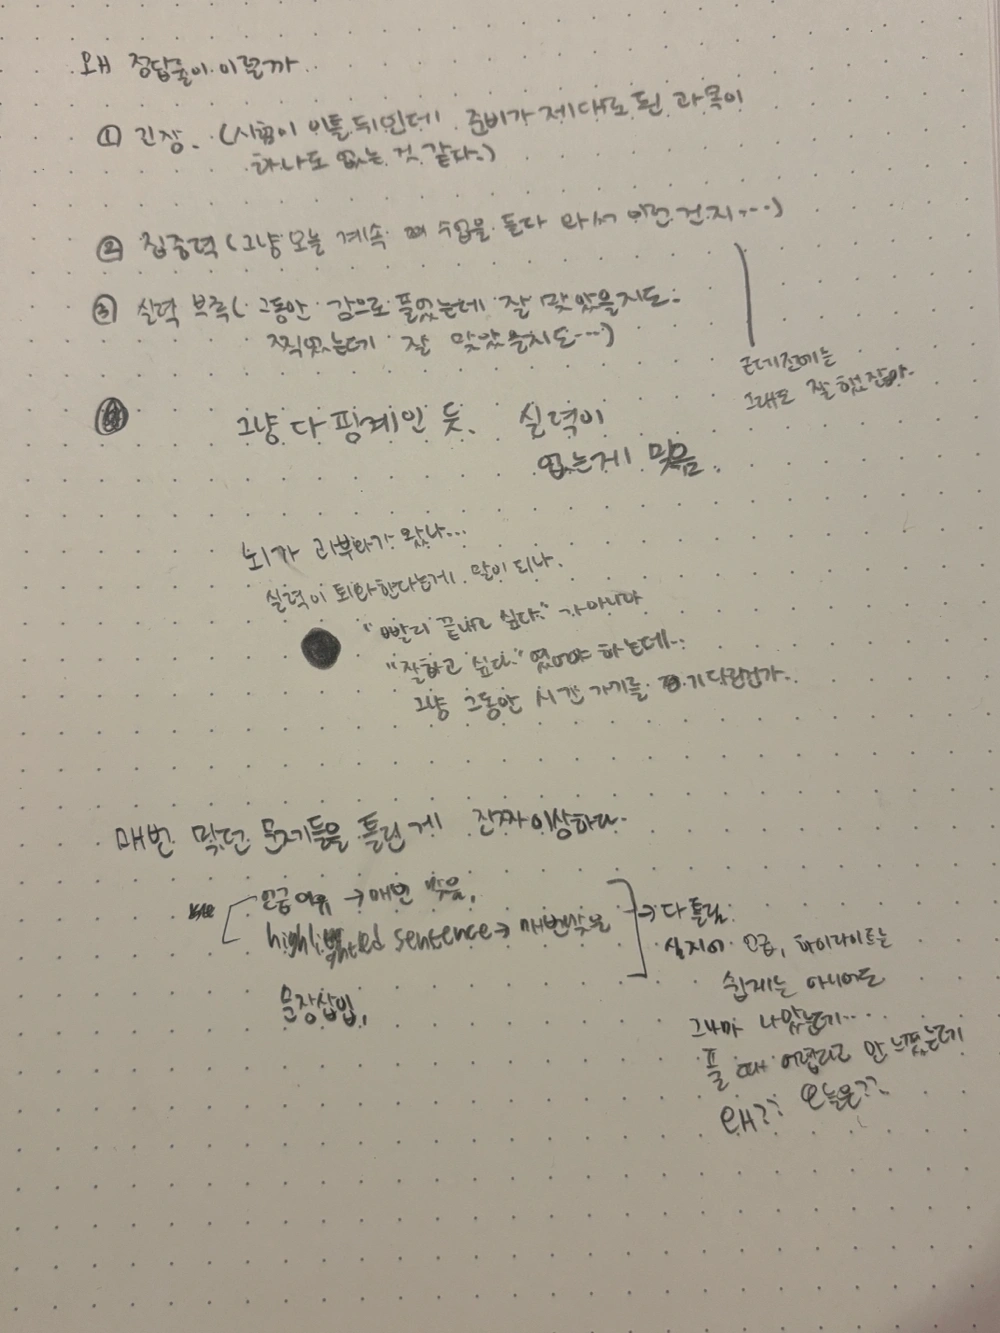 왜 정답률이 이럴까
① 긴장. (시험이 이틀 뒤인데 준비가 제대로 된 과목이
하나도 없는 것 같다.)
② 집중력 (그냥 오늘 계속 수업을 듣다 와서 이런건지...)
③ 실력 부족( 그동안 감으로 풀었는데 잘 맞았을지도.
찍었는데 잘 맞았을지도...)
근데 전에는
그래도 잘 했잖아.
그냥 다 핑계인 듯. 실력이
없는게 맞음.
뇌가 과부하가 왔나...
실력이 퇴화한다는게 말이 되나.
"빨리 끝내고 싶다." 가 아니라
"잘하고 싶다." 였어야 하는데..
그냥 그동안 시간 가기를 기다린건가..
매번 맞던 문제들을 틀린게 진짜 이상하다.
언급여부 → 매번 맞음.
highlighted sentence → 매번 맞음
문장삽입.
→ 다 틀림.
심지어 언급, 하이라이트는
쉽게는 아니어도
그나마 나았는데...
풀 때 어렵다고 안 느꼈는데
왜?? 오늘은??